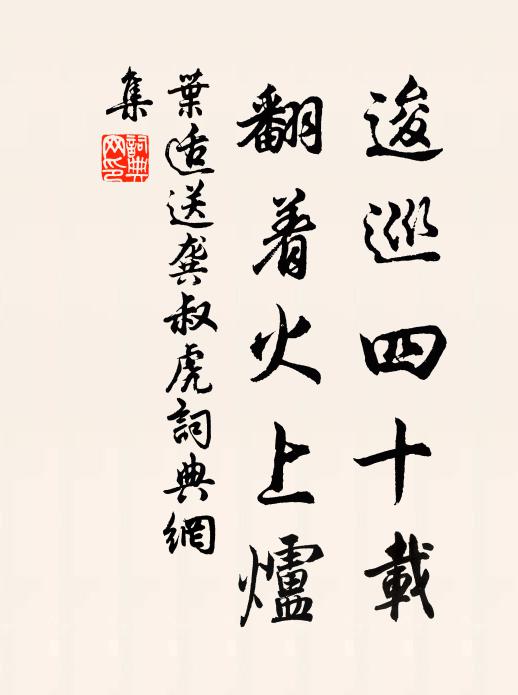 逡巡四十載
翻着火上爐
葉适送龔叔虎詞典網
集
詞典
网印